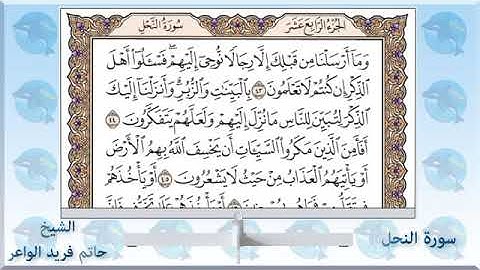 سُورَةُ النَّحْلِ
الجُزْءُ الرَّابِعَ عَشَرَ
وَمَآ أَرْسَلْنَا مِن قَبْلِكَ إِلَّا رِجَالًا نُّوحِىٓ إِلَيْهِمْ ۖ فَسْـَٔلُوٓا۟ أَهْلَ
ٱلذِّكْرِ إِن كُنتُمْ لَا تَعْلَمُونَ ٤٣ بِٱلْبَيِّنَـٰتِ وَٱلزُّبُرِ ۗ وَأَنزَلْنَآ إِلَيْكَ
ٱلذِّكْرَ لِتُبَيِّنَ لِلنَّاسِ مَا نُزِّلَ إِلَيْهِمْ وَلَعَلَّهُمْ يَتَفَكَّرُونَ ٤٤
أَفَأَمِنَ ٱلَّذِينَ مَكَرُوا۟ ٱلسَّيِّـَٔاتِ أَن يَخْسِفَ ٱللَّهُ بِهِمُ ٱلْأَرْضَ
أَوْ يَأْتِيَهُمُ ٱلْعَذَابُ مِنْ حَيْثُ لَا يَشْعُرُونَ ٤٥ أَوْ يَأْخُذَهُمْ
الشيخ
حاتم فريد الواعر
سورة النحل